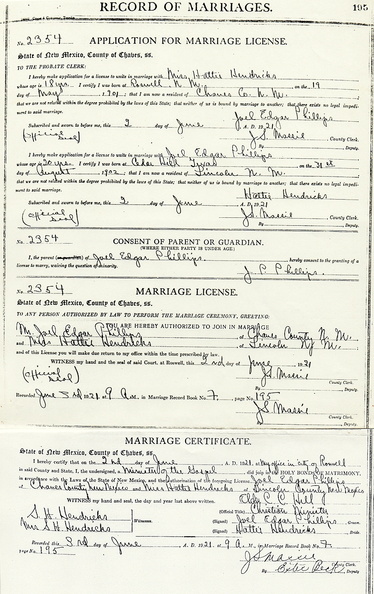 RECORD OF MARRIAGES.
195
No. 2354 APPLICATION FOR MARRIAGE LICENSE.
State of New Mexico, County of Chaves, ss.
TO THE PROBATE CLERK:
I hereby make application for a license to unite in marriage with Miss Hattie Hendricks
whose age is 18 yrs. I certify I was born at Roswell N. M. on the 19
day of May 1901; that I am now a resident of Chaves Co. N. M.
that we are not related within the degree prohibited by the laws of this State; that neither of us is bound by marriage to another; that there exists no legal impedi-
ment to said marriage.
Joel Edgar Phillips
Subscribed and sworn to before me, this 2 day of June A. D. 1921
(Official Seal) J S Massie County Clerk.
By Deputy
I hereby make application for a license to unite in marriage with Joel Edgar Phillips
whose age is 20 yrs. I certify I was born at Cedar Texas on the 31st
day of August 1902; that I am now a resident of Lincoln N. M.
that we are not related within the degree prohibited by the laws of this State; that neither of us is bound by marriage to another; that there exists no legal impedi-
ment to said marriage.
Hattie Hendricks
Subscribed and sworn to before me, this 2 day of June A. D. 1921
(Official Seal) J S Massie County Clerk.
By Deputy
No. 2354 CONSENT OF PARENT OR GUARDIAN.
(WHERE EITHER PARTY IS UNDER AGE.)
I the parent of Joel Edgar Phillips, hereby consent to the granting of a
license to marry, waiving the question of minority.
J. P. Phillips.
No. 2354
MARRIAGE LICENSE.
State of New Mexico, County of Chaves, ss.
TO ANY PERSON AUTHORIZED BY LAW TO PERFORM THE MARRIAGE CEREMONY, GREETING:
YOU ARE HEREBY AUTHORIZED TO JOIN IN MARRIAGE
Mr. Joel Edgar Phillips of Chaves County N. M.
and Miss Hattie Hendricks of Lincoln N. M.
and of this License you will make due return to my office within the time prescribed by law.
WITNESS my hand and the seal of said Court, at Roswell, this 2nd day of June 1921
(Official Seal) J S Massie County Clerk.
By Deputy
Recorded June 3rd 1921 at 9 A m. in Marriage Record Book No. 7, page No. 195
J S Massie County Clerk.
By Deputy
MARRIAGE CERTIFICATE.
State of New Mexico, County of Chaves, ss.
I hereby certify that on the 2nd day of June A. D. 1921, at my office in city of Roswell
in said County and State, I, the undersigned, a Minister of the Gospel did join in the HOLY BONDS OF MATRIMONY,
in accordance with the Laws of the State of New Mexico, and the authorization of the foregoing License Joel Edgar Phillips
of Chaves County New Mexico and Miss Hattie Hendricks of Lincoln County New Mexico
WITNESS my hand and seal, the day and year last above written. Hill
(Official Title) Christian Minister
S. H. Hendricks (Signed) Joel Edgar Phillips Groom.
Mrs S. H. Hendricks Witnesses. (Signed) Hattie Hendricks Bride.
Recorded this 3rd day of June A. D. 1921, at 9 A. m. in Marriage Record Book No. 7
page No. 195
J S Massie County Clerk.
By Deputy